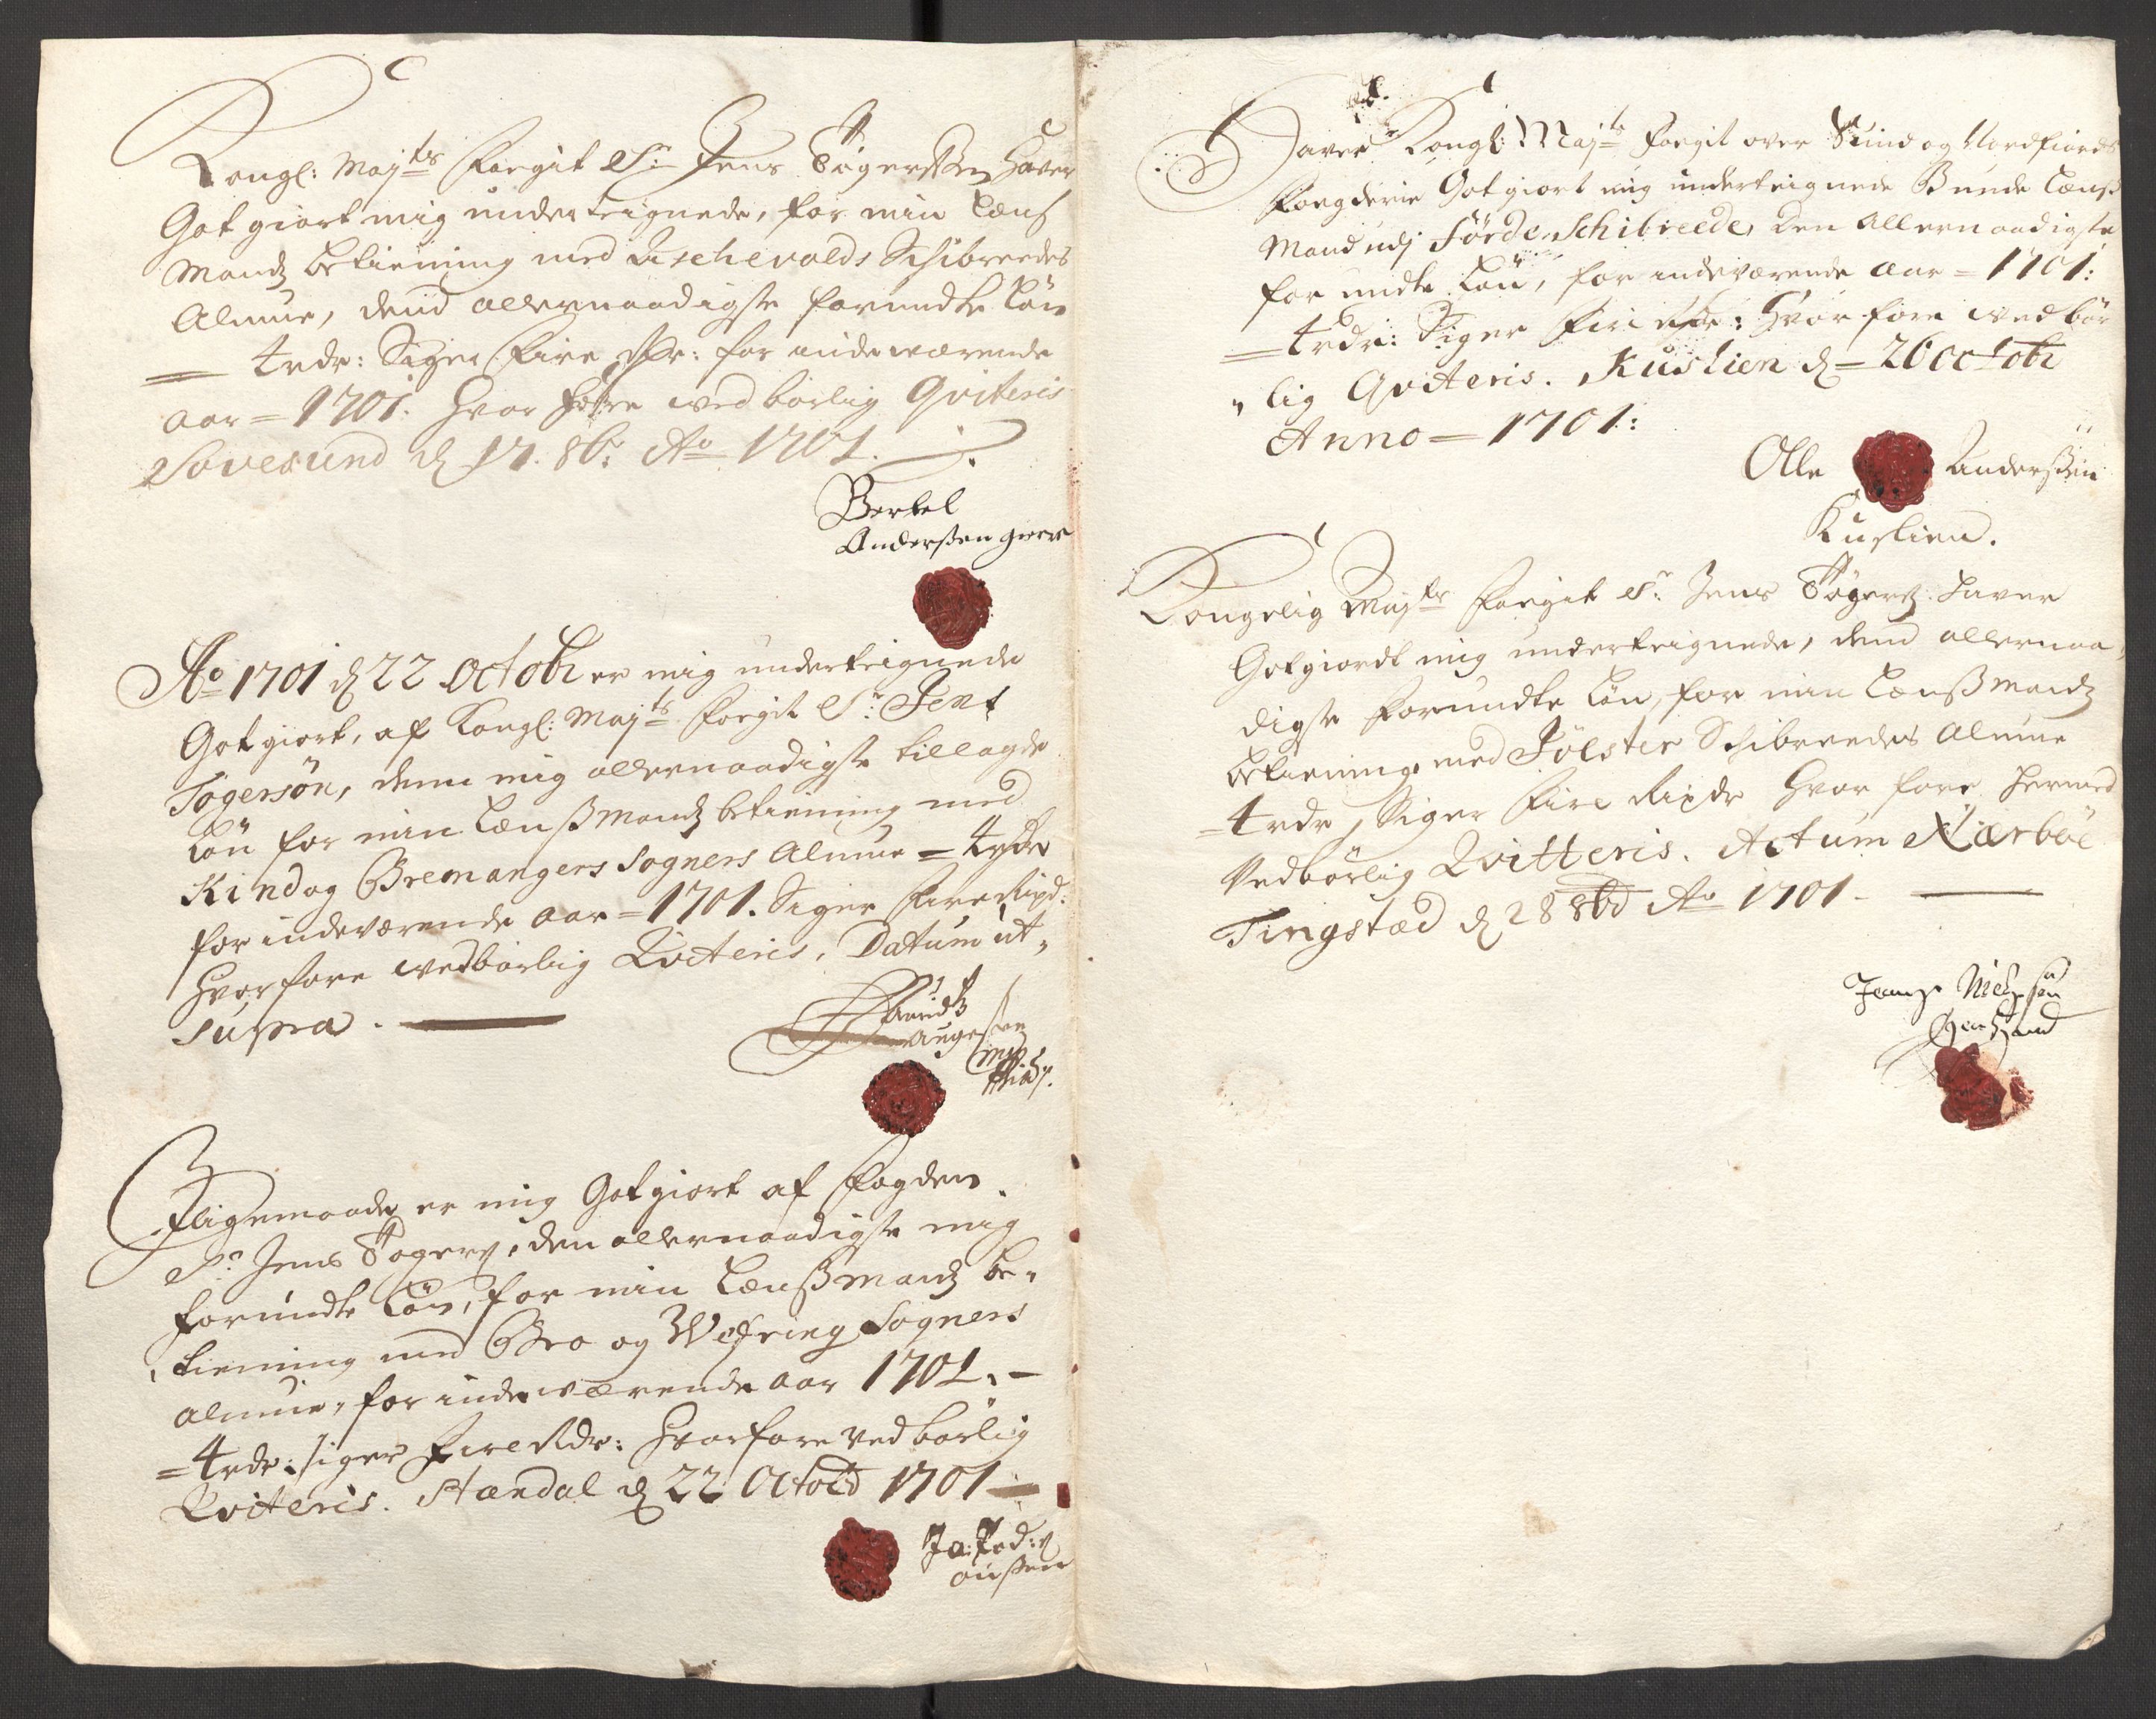 Kongl: Maj:ts Foegit Sr Jens Tøgerssen Haver
Got giort mig underteignede, for min Læns
Mandz betiening med Aschevolds Schibreedes
Almue, dend allernaadigste forundte Løn
= 4 rdr: Siger Fire Rdr: for indeværende
aar = 1701. Hvor fore ved børlig Qviteris
Sovesund d 17. 8br: Ao 1701.
Bertel
Anderssen
Ao 1701 d 22 Octobr er mig underteignede
Gotgiort, af Kongl: Maj:ts Foegit Sr: Jens
Tøgersøn, denn mig allernaadigste tillagde
Løn for min Lænssmandz betiening med
Kind og Bremangers Sogners Almue = 4 rdr
for indeværende aar = 1701. Siger Fire Rixd:
Hvorfore wedbørlig Qviteris, Datum ut
Supra.
Ligemaade er mig Gotgiort af Fogden
Sr Jens Tøgers, den allernaadigste mig
forundte Løn, for min Lænssmandz be-
tiening med Bro og Wefring Sogners
almue, for indeværende aar 1701. -
= 4 rdr: siger Fire Rdr: Hvorfore ved børlig
Qviteris. Standal d 22 Octobr 1701
Haver Kongl: Maj:ts Foegit over Sund og Nordfiords
Foegderie Got giort mig underteignede Bunde Lænss
Mand udj Førde Schibreede, den Allernaadigste
for undte Løn, for indeværende Aar = 1701:
= 4 rdr: Siger Fire Rdr: Hvor fore wedbør
lig Qviteris. Kuslien d = 26 Octobr
Anno = 1701:
Olle Anderssen
Kuslien.
Kongelig Maj:ts Foegit Sr: Jens Tøgers Haver
Gotgiordt mig underteignede, dend allernaa
digste Forundte Løn, for min Lænssmandz
betiening med Jølster Schibreedes Almue
= 4 rdr, Siger Fire Rixdr Hvor fore hermed
Vedbørlig Qvitteris. Actum Kiærbøe
Tingstæd d 28 8br Ao 1701 -